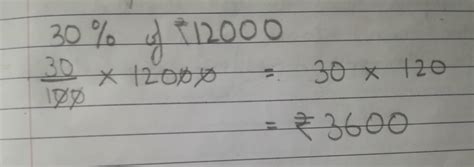 30% of ₹12000
30/100 × 12000 = 30 × 120
= ₹3600